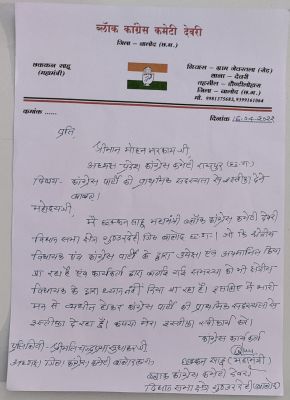 ब्लाक कांग्रेस कमेटी देवरी
जिला - बालोद (छ.ग.)
छककन साहू
(महामंत्री)
निवास - ग्राम जेवरतला (जेड)
थाना - देवरी
तहसील - डौण्डीलोहारा
जिला - बालोद (छ.ग.)
मो. 9981375683, 9399161064
क्रमांक
दिनांक 16.04.2022
प्रति,
श्रीमान मोहन मरकाम जी
अध्यक्ष प्रदेश कांग्रेस कमेटी रायपुर (छ.ग.)
विषय- कांग्रेस पार्टी की प्राथमिक सदस्यता से इस्तीफा देने
बाबत्।
महोदय जी,
मैं छककन साहू महामंत्री ब्लॉक कांग्रेस कमेटी देवरी
विधान सभा क्षेत्र गुण्डरदेही जिला बालोद छ.ग.। जो कि क्षेत्रीय
विधायक एवं कांग्रेस पार्टी के द्वारा उपेक्षा एवं अपमानित किया
जा रहा है एवं कार्यकर्ता द्वारा बताये गये समस्या को भी क्षेत्रीय
विधायक के द्वारा ध्यान नहीं दिया जा रहा है। इसलिए मैं भारी
मन से कांग्रेस पार्टी की प्राथमिक सदस्यता से
इस्तीफा दे रहा हूँ। कृपया मेरा इस्तीफा स्वीकार करें।
कांग्रेस कार्यकर्ता
प्रतिलिपि - श्रीमति चन्द्रप्रभा सुधाकर जी
अध्यक्ष जिला कांग्रेस कमेटी बालोद
छककन साहू (महामंत्री)
ब्लाक कांग्रेस कमेटी देवरी
विधान सभा क्षेत्र गुण्डरदेही (बालोद)